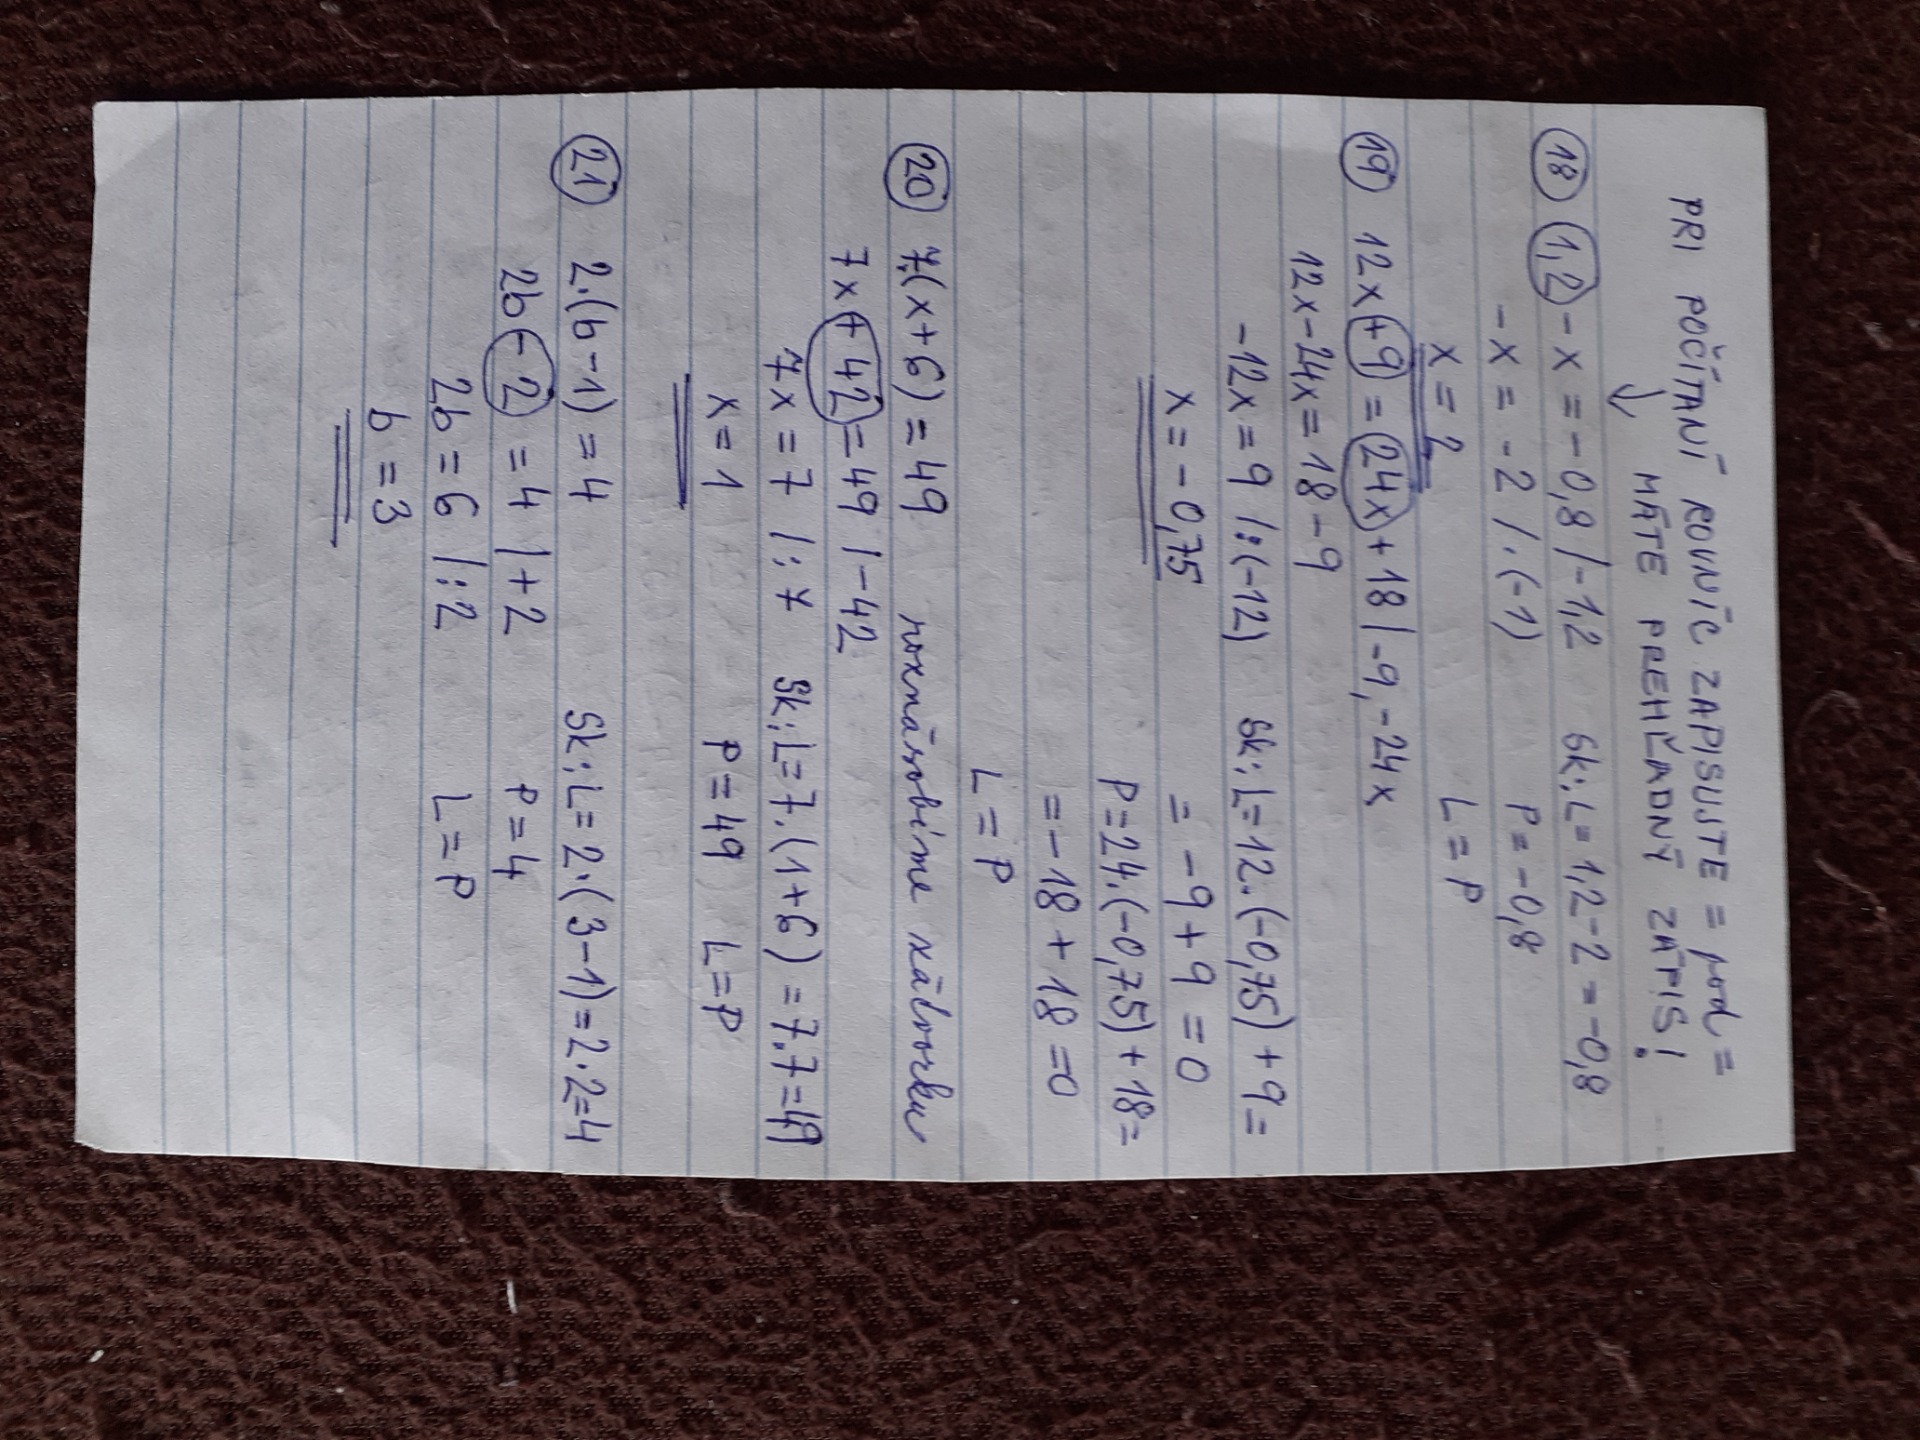 PRI POČÍTANÍ ROVNÍC ZAPISUJTE = pod =
↓ MÁTE PREHĽADNÝ ZÁPIS!
18 1,2 - x = -0,8 / -1,2 Sk: L = 1,2 - 2 = -0,8
-x = -2 / . (-1) P = -0,8
x = 2 L = P
19 12x + 9 = 24x + 18 | -9, -24x
12x - 24x = 18 - 9
-12x = 9 / : (-12) Sk: L = 12 . (-0,75) + 9 =
x = -0,75 = -9 + 9 = 0
P = 24 . (-0,75) + 18 =
= -18 + 18 = 0
L = P
20 7.(x + 6) = 49 roznásobíme zátvorku
7x + 42 = 49 / -42
7x = 7 / : 7 Sk: L = 7 . (1 + 6) = 7.7 = 49
x = 1 P = 49 L = P
21 2.(b - 1) = 4 Sk: L = 2.(3 - 1) = 2.2 = 4
2b - 2 = 4 | + 2 P = 4
2b = 6 | : 2 L = P
b = 3